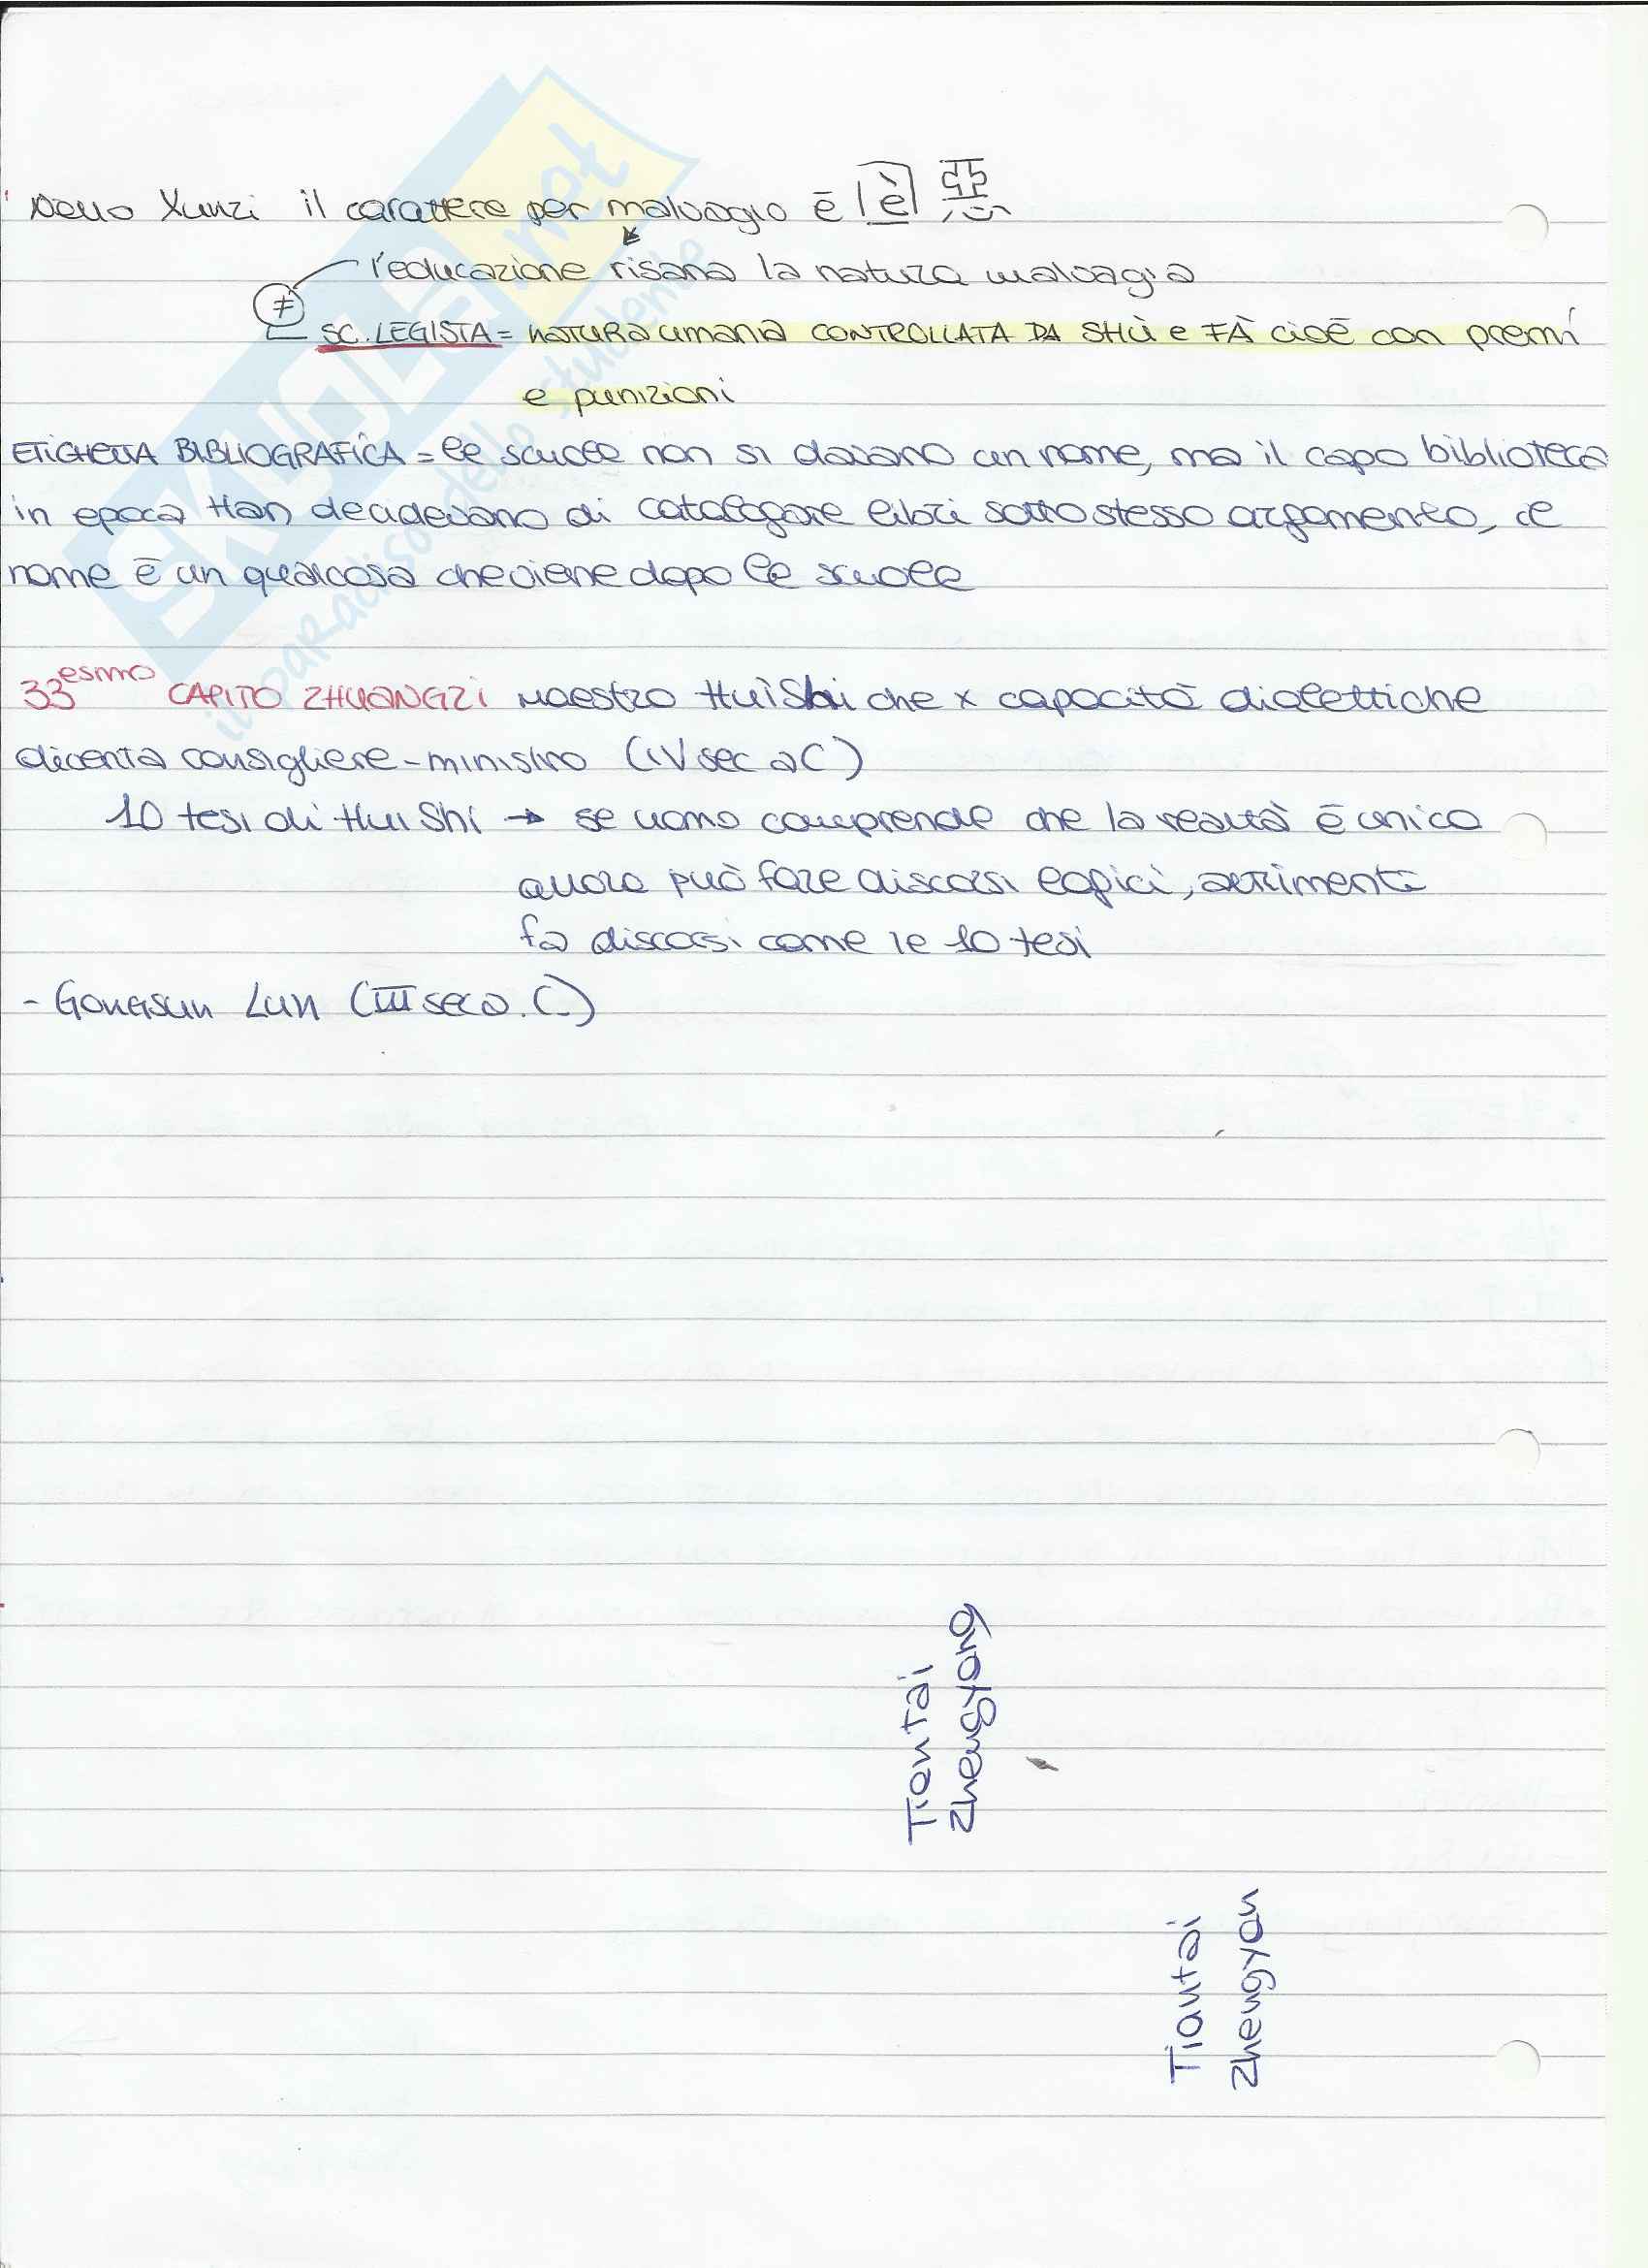 Nello Xunzi il carattere per malvagio è |è| 惡
l'educazione risana la natura malvagia
≠
SC. LEGISTA = NATURA UMANA CONTROLLATA DA SHÙ e FÀ cioè con premi
e punizioni
ETICHETTA BIBLIOGRAFICA = le scuole non si davano un nome, ma il capo biblioteca
in epoca Han decidevano di catalogare libri sotto stesso argomento, il
nome è un qualcosa che viene dopo le scuole
33esmo CAPITO ZHUANGZI maestro Hui Shi che x capacità dialettiche
diventa consigliere-ministro (IV sec a C)
10 tesi di Hui Shi → se uomo comprende che la realtà è unica
allora può fare discorsi logici, altrimenti
fa discorsi come le 10 tesi
- Gongsun Lun (III sec a.C.)
Tiantai
Zhengyang
Tiantai
Zhengyan
SKUOLA.net
il paradiso dello studente